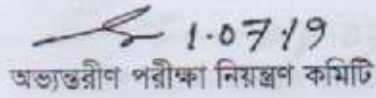 1.07.19
অভ্যন্তরীণ পরীক্ষা নিয়ন্ত্রণ কমিটি